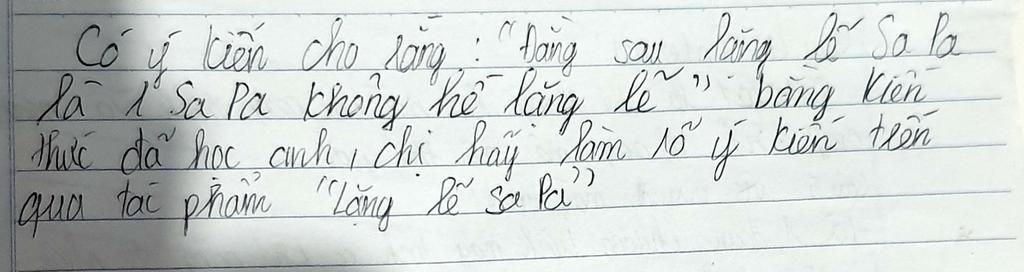 Có ý kiến cho rằng: "Đằng sau lặng lẽ Sa Pa
là 1 Sa Pa không hề lặng lẽ" bằng kiến
thức đã học anh, chị hãy làm rõ ý kiến trên
qua tác phẩm "Lặng lẽ Sa Pa"